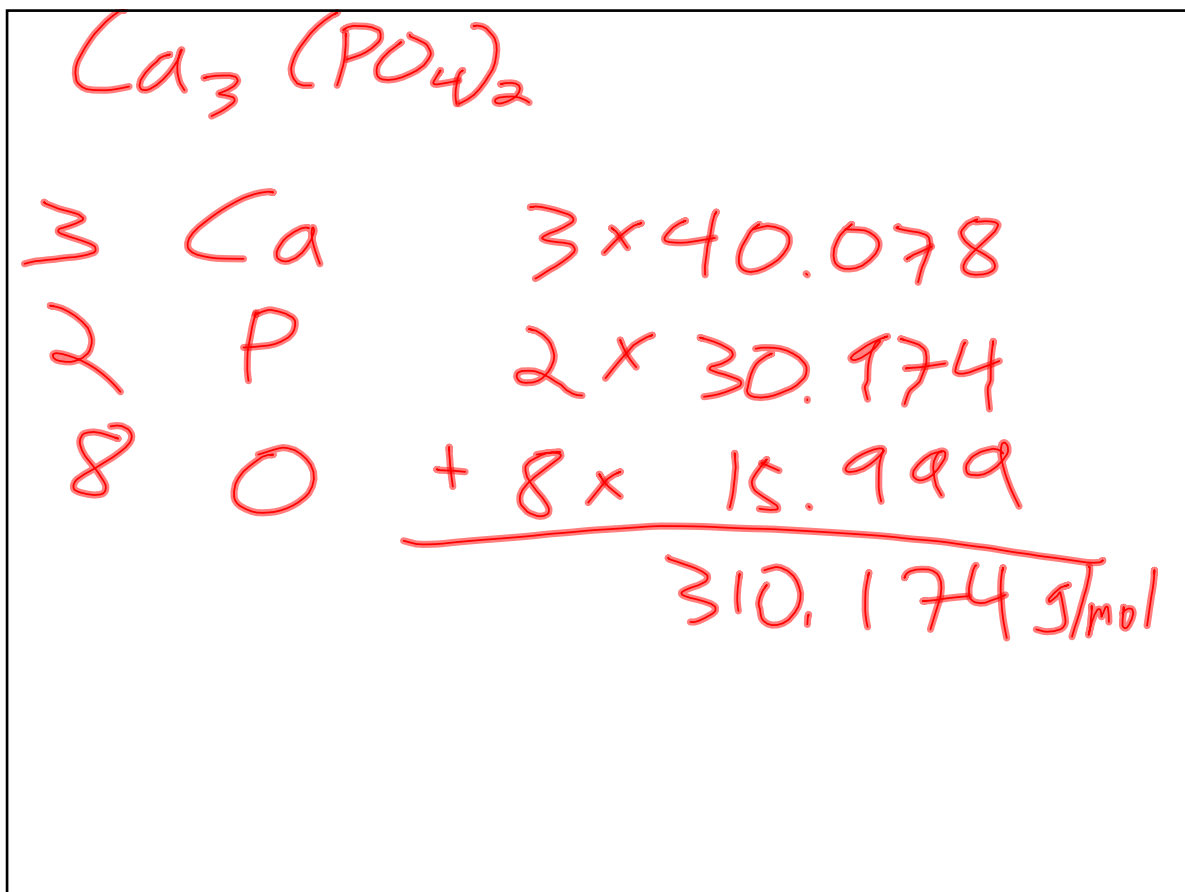 Ca₃(PO₄)₂
3 Ca 3 × 40.078
2 P 2 × 30.974
8 O + 8 × 15.999
310.174 g/mol